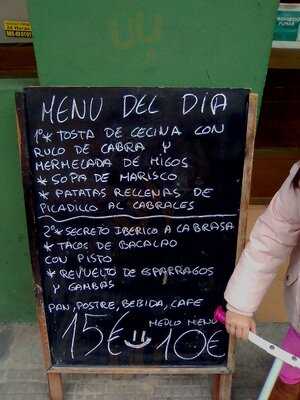 MENU DEL DIA
1º* TOSTA DE CECINA CON
RULO DE CABRA Y
MERMELADA DE HIGOS
* SOPA DE MARISCO
* PATATAS RELLENAS DE
PICADILLO AL CABRALES
2º* SECRETO IBERICO A LA BRASA
* TACOS DE BACALAO
CON PISTO
* REVUELTO DE ESPARRAGOS
Y GAMBAS
PAN, POSTRE, BEBIDA, CAFE
15€
MEDIO MENU
10€